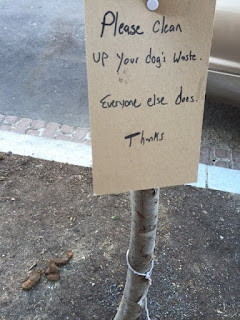 Please Clean
up your dog's waste.
Everyone else does.
Thanks